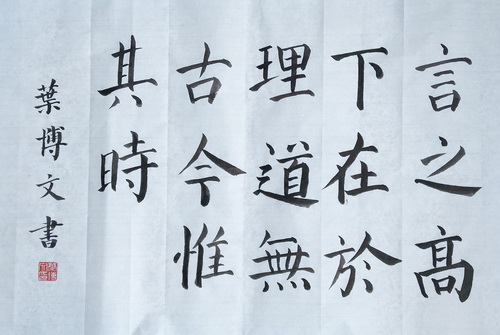 言之高
下在於
理道無
古今惟
其時
葉博文書